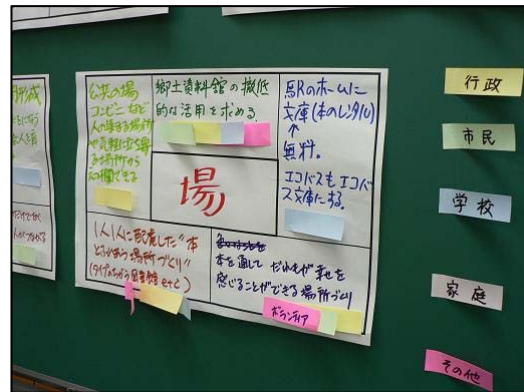 公共の場
コンビニなど
人の集まる場所
や気軽に立ち寄
る場所から
できる
郷土資料館の徹底
的な活用を求める。
駅のホームに
文庫(本のレンタル)
↑
無料。
エコバスもエコバ
ス文庫にする。
場
1人1人に配慮した“本
とふれあう場所づくり”
(タイプのちがう図書館 etc)
本を通して だれもが幸せを
感じることができる場所づくり
ボランティア
行政
市民
学校
家庭
その他
形成